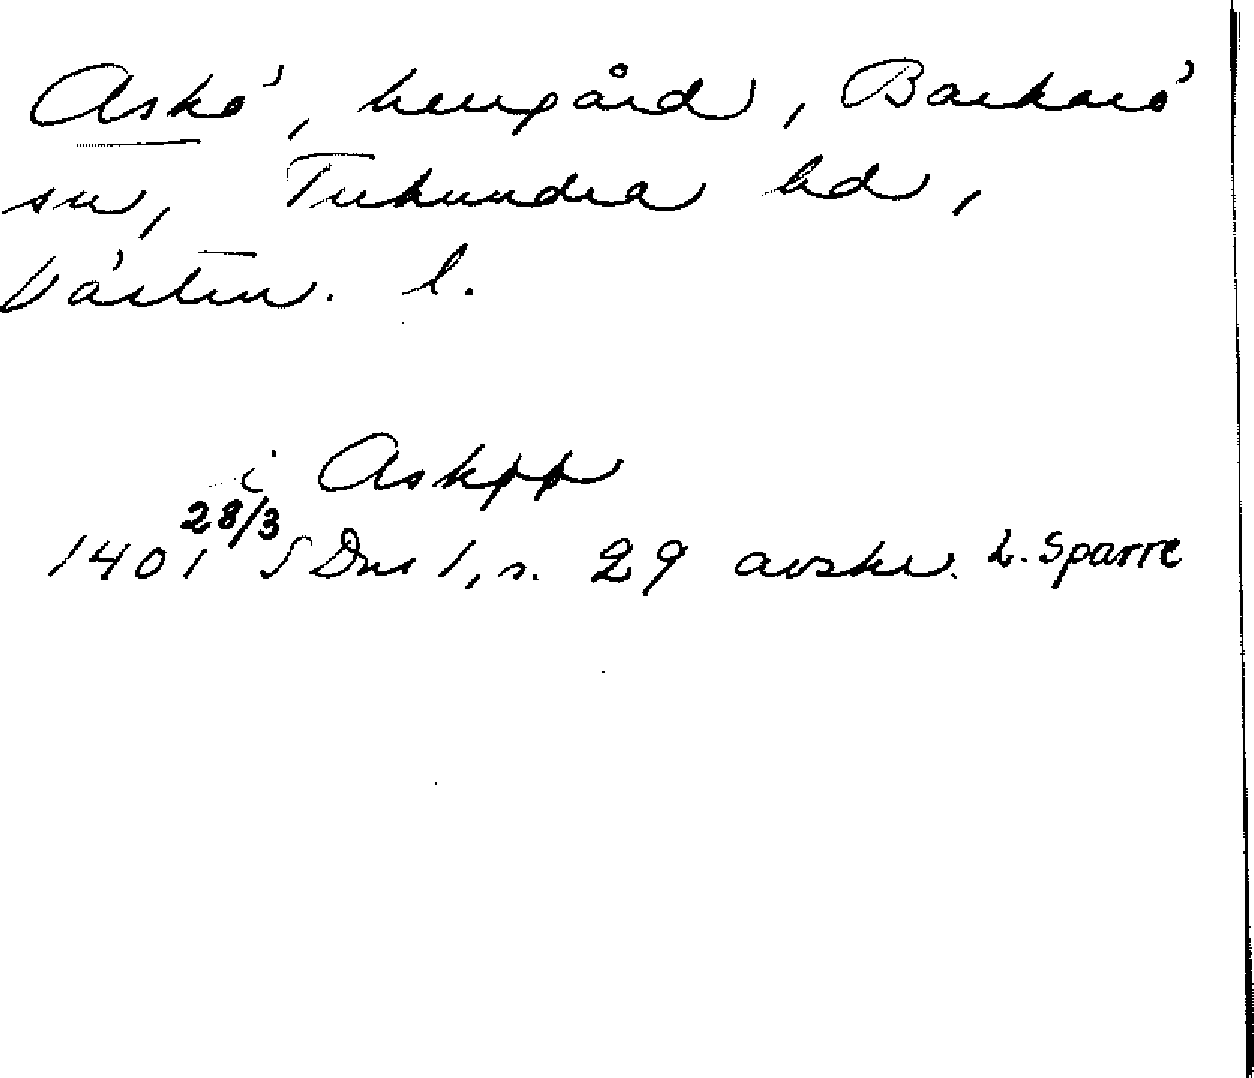 Askö, herrgård, Barkarö
sn, Tuhundra hd,
Västm. l.
i Askpp
1401 28/3 SDns 1, s. 29 avskr. L. Sparre